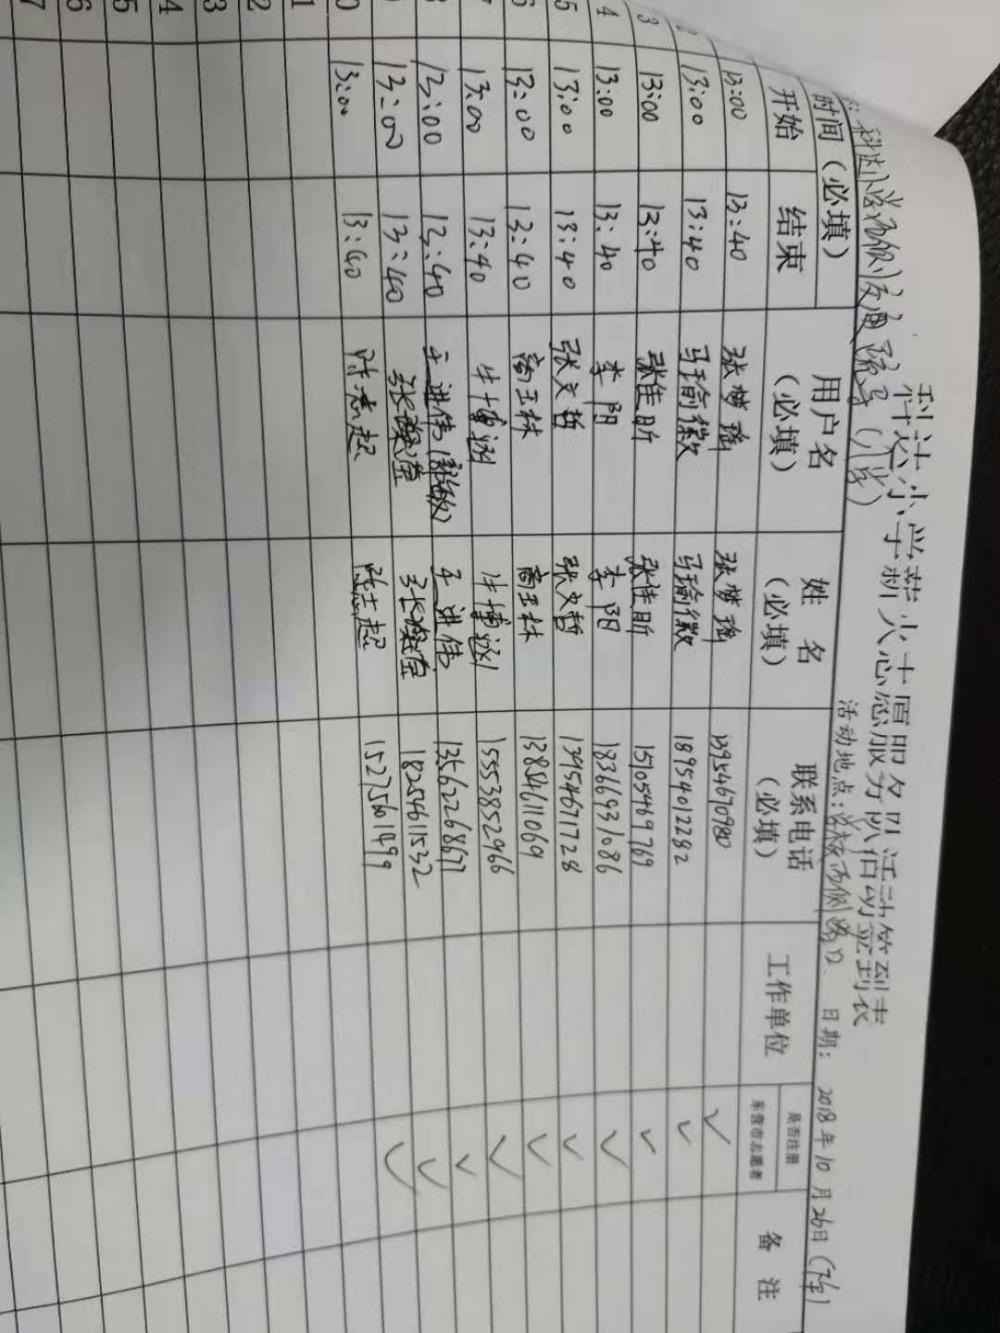 科达小学薪火志愿服务队活动签到表
科达小学西侧交通疏导(上学)
活动地点:学校西侧路口 日期: 2018年10月26日(下午)
时间(必填) 用户名(必填) 姓 名(必填) 联系电话(必填) 工作单位 是否注册东营市志愿者 备 注
开始 结束
13:00 13:40 张梦瑶 张梦瑶 13954670980 ✓
13:00 13:40 马瑜徽 马瑜徽 18954012282 ✓
3 13:00 13:40 张佳昕 张佳昕 15105469769 ✓
4 13:00 13:40 李阳 李阳 18366931086 ✓
5 13:00 13:40 张文哲 张文哲 13954671728 ✓
6 13:00 13:40 商玉林 商玉林 13854611069 ✓
7 13:00 13:40 牛博涵 牛博涵 15553852966 ✓
8 13:00 13:40 王进伟 王进伟 13562268671 ✓
13:00 13:40 18254611532 ✓
0 13:00 13:40 陈志超 陈志超 15275601499 ✓
1
2
3
4
5
6
7